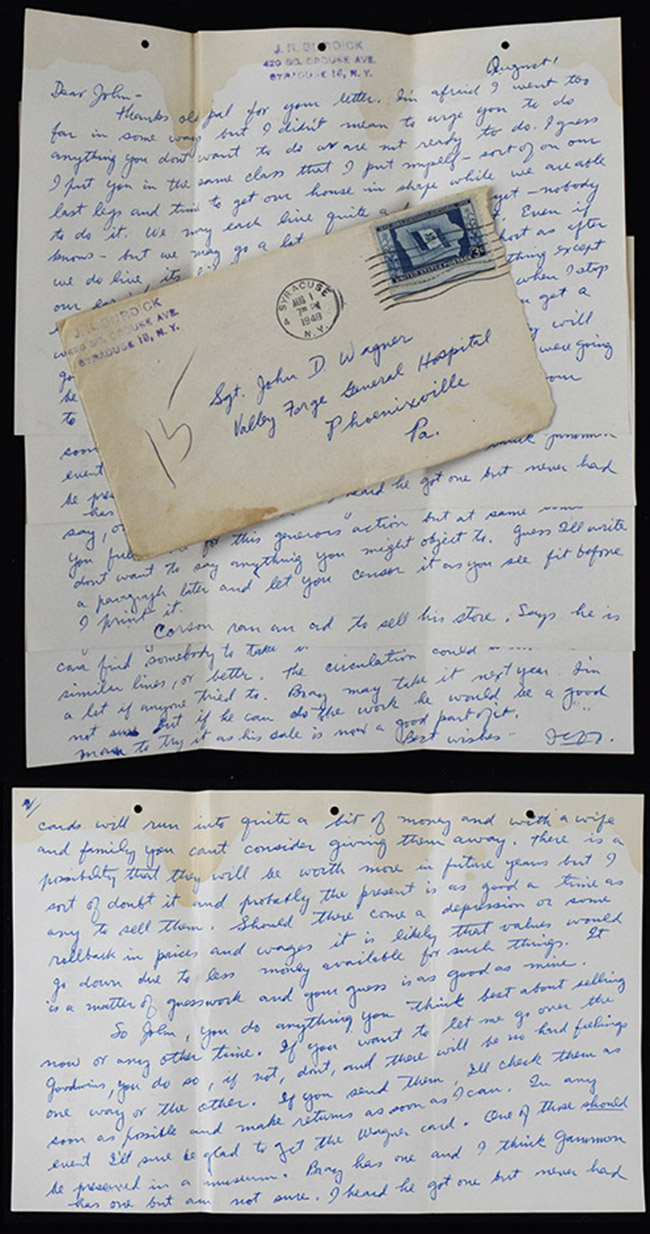 J. R. BURDICK
420 SO. CROUSE AVE.
SYRACUSE 10, N. Y.
August 1
Dear John -
Thanks old pal for your letter. I'm afraid I went too
far in some ways but I didn't mean to urge you to do
anything you don't want to do or are not ready to do. I guess
I put you in the same class that I put myself - sort of on our
last legs and time to get our house in shape while we are able
to do it. We may each live quite a yet - nobody
knows - but we may go a lot Even if
we do live, its as after
our except
when I stop
get a
will
were going
to our
J. R. BURDICK
420 SO. CROUSE AVE.
SYRACUSE 10, N. Y.
SYRACUSE
AUG 1
7 PM
1948
N.Y.
UNITED STATES POSTAGE 3¢
15
Sgt. John D. Wagner
Valley Forge General Hospital
Phoenixville
Pa.
soon
event
be pres
has heard he got one but never had
say, or
you for this generous action but at same
don't want to say anything you might object to. Guess I'll write
a paragraph later and let you censor it as you see fit before
I print it.
Corson ran an ad to sell his store. Says he is
can find "somebody to take
similar lines, or better. The circulation could
a lot if anyone tried to. Bray may take it next year. I'm
not sure but if he can do the work he would be a good
man to try it as his sale is now a good part of it.
Best wishes -
2/
cards will run into quite a bit of money and with a wife
and family you cant consider giving them away. There is a
possibility that they will be worth more in future years but I
sort of doubt it and probably the present is as good a time as
any to sell them. Should there come a depression or some
rollback in prices and wages it is likely that values would
go down due to less money available for such things. It
is a matter of guesswork and your guess is as good as mine.
So John, you do anything you think best about selling
now or any other time. If you want to let me go over the
Goodwins, you do so, if not, dont, and there will be no hard feelings
one way or the other. If you send them, I'll check them as
soon as possible and make returns as soon as I can. In any
event I'll sure be glad to get the Wagner card. One of those should
be preserved in a museum. Bray has one and I think Gammon
has one but am not sure. I heard he got one but never had